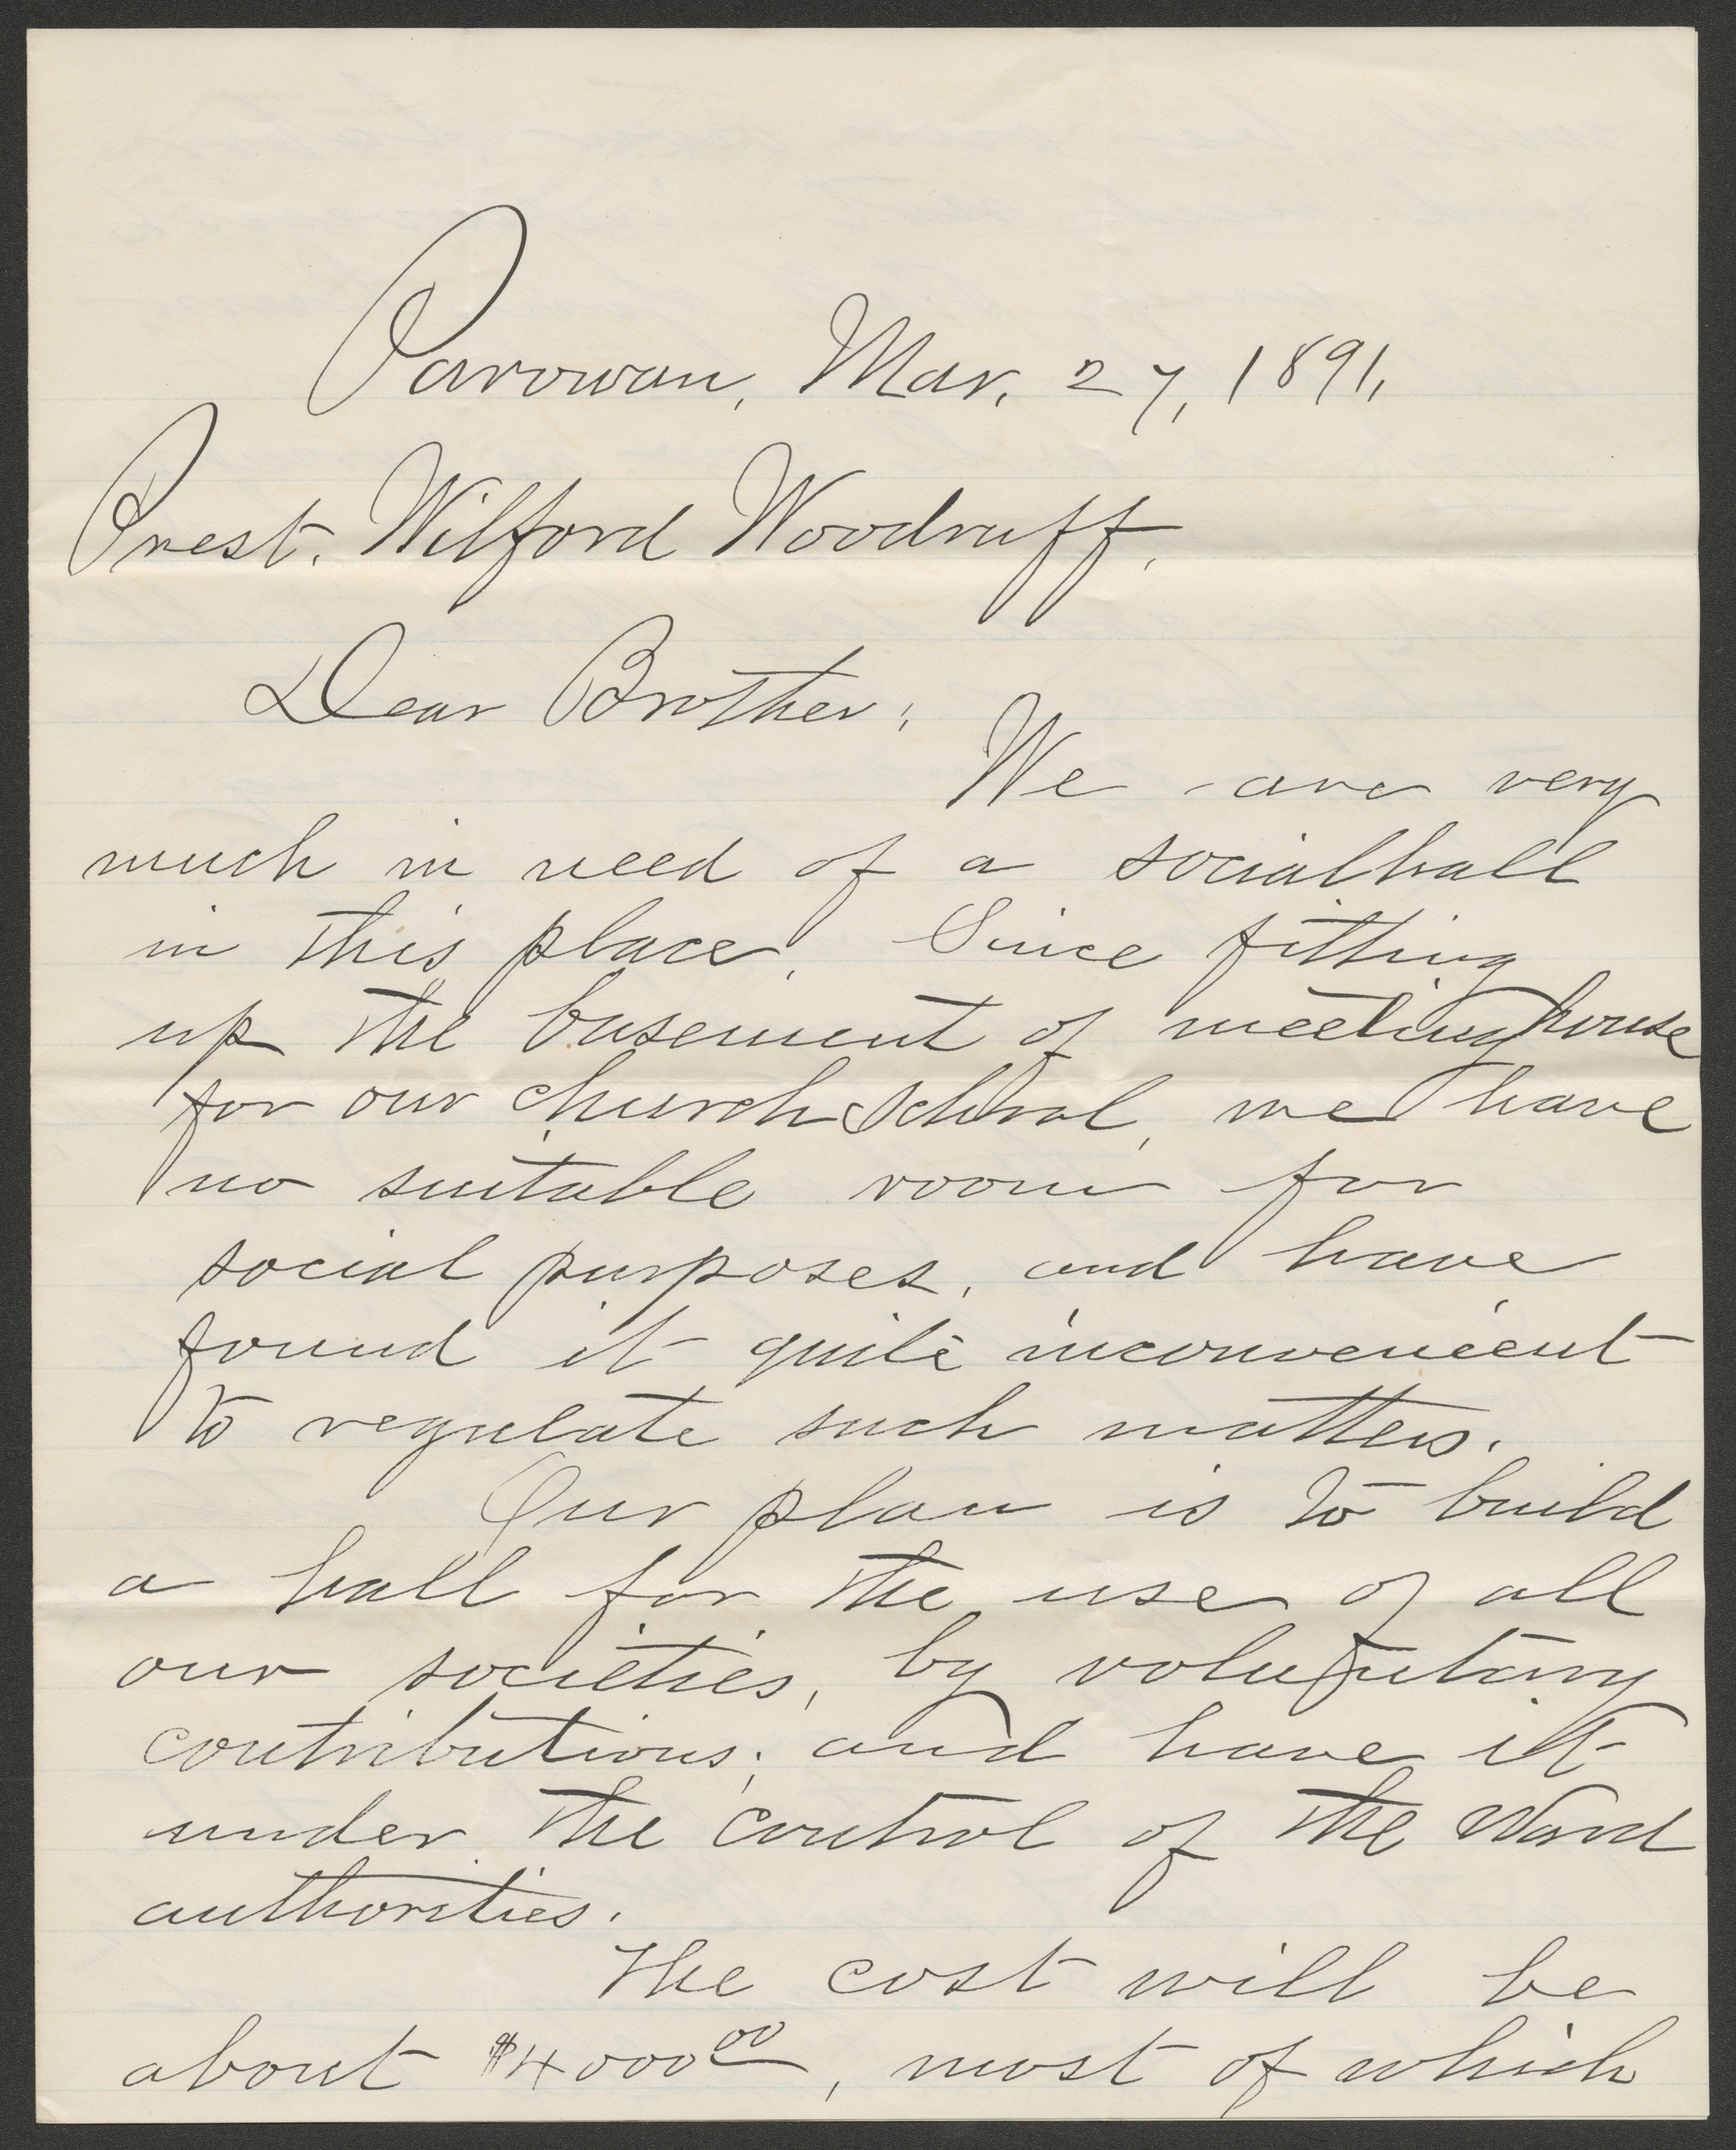 Parowan, Mar. 27, 1891,
Prest. Wilford Woodruff.
Dear Brother:
We are very
much in need of a socialhall
in this place. Since fitting
up the basement of meetinghouse
for our church school, we have
no suitable room for
social purposes, and have
found it quite inconvenient
to regulate such matters.
Our plan is to build
a hall for the use of all
our societies, by voluntary
contributions; and have it
under the control of the Ward
authorities.
The cost will be
about $4000.00, most of which